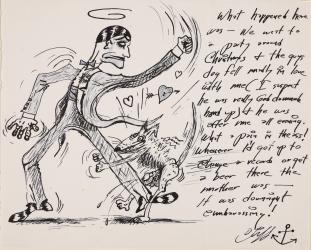 What happened here
was — We went to
a party around
Christmas & the guys
dog fell madly in love
with me (I suspect
he was really God damned
hard up) & he was
after me all evening.
What a pain in the ass!
Whenever I'd get up to
change a record or get
a beer there the
mother was —
It was downright
embarrassing!